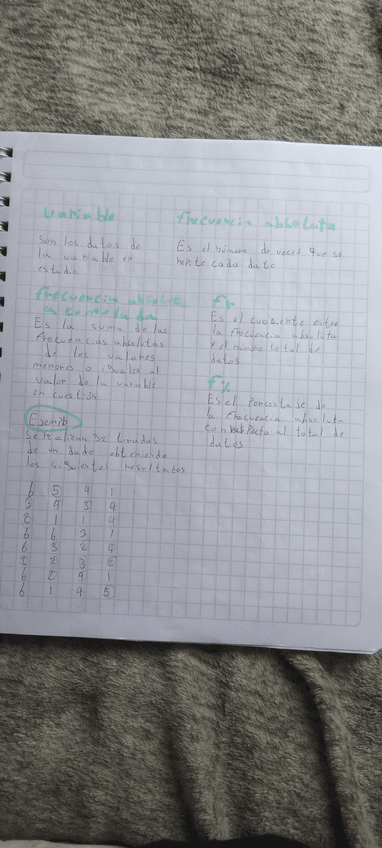 variable
Son los datos de
la variable en
estudio
frecuencia absoluta
Es el número de veces que se
repite cada dato
frecuencia absoluta
acumulada
Es la suma de las
frecuencias absolutas
de los valores
menores o iguales al
valor de la variable
en cuestión
Fr
Es el cuosiente entre
la frecuencia absoluta
y el número total de
datos
F%
Es el Porcentaje de
la frecuencia absoluta
con respecto al total de
datos
Ejemplo
Se realizan 32 tiradas
de un dado obteniendo
los siguientes resultados
6 5 4 1
3 4 3 4
2 1 1 4
6 6 3 1
6 3 2 4
2 2 3 2
6 2 4 1
6 1 4 5